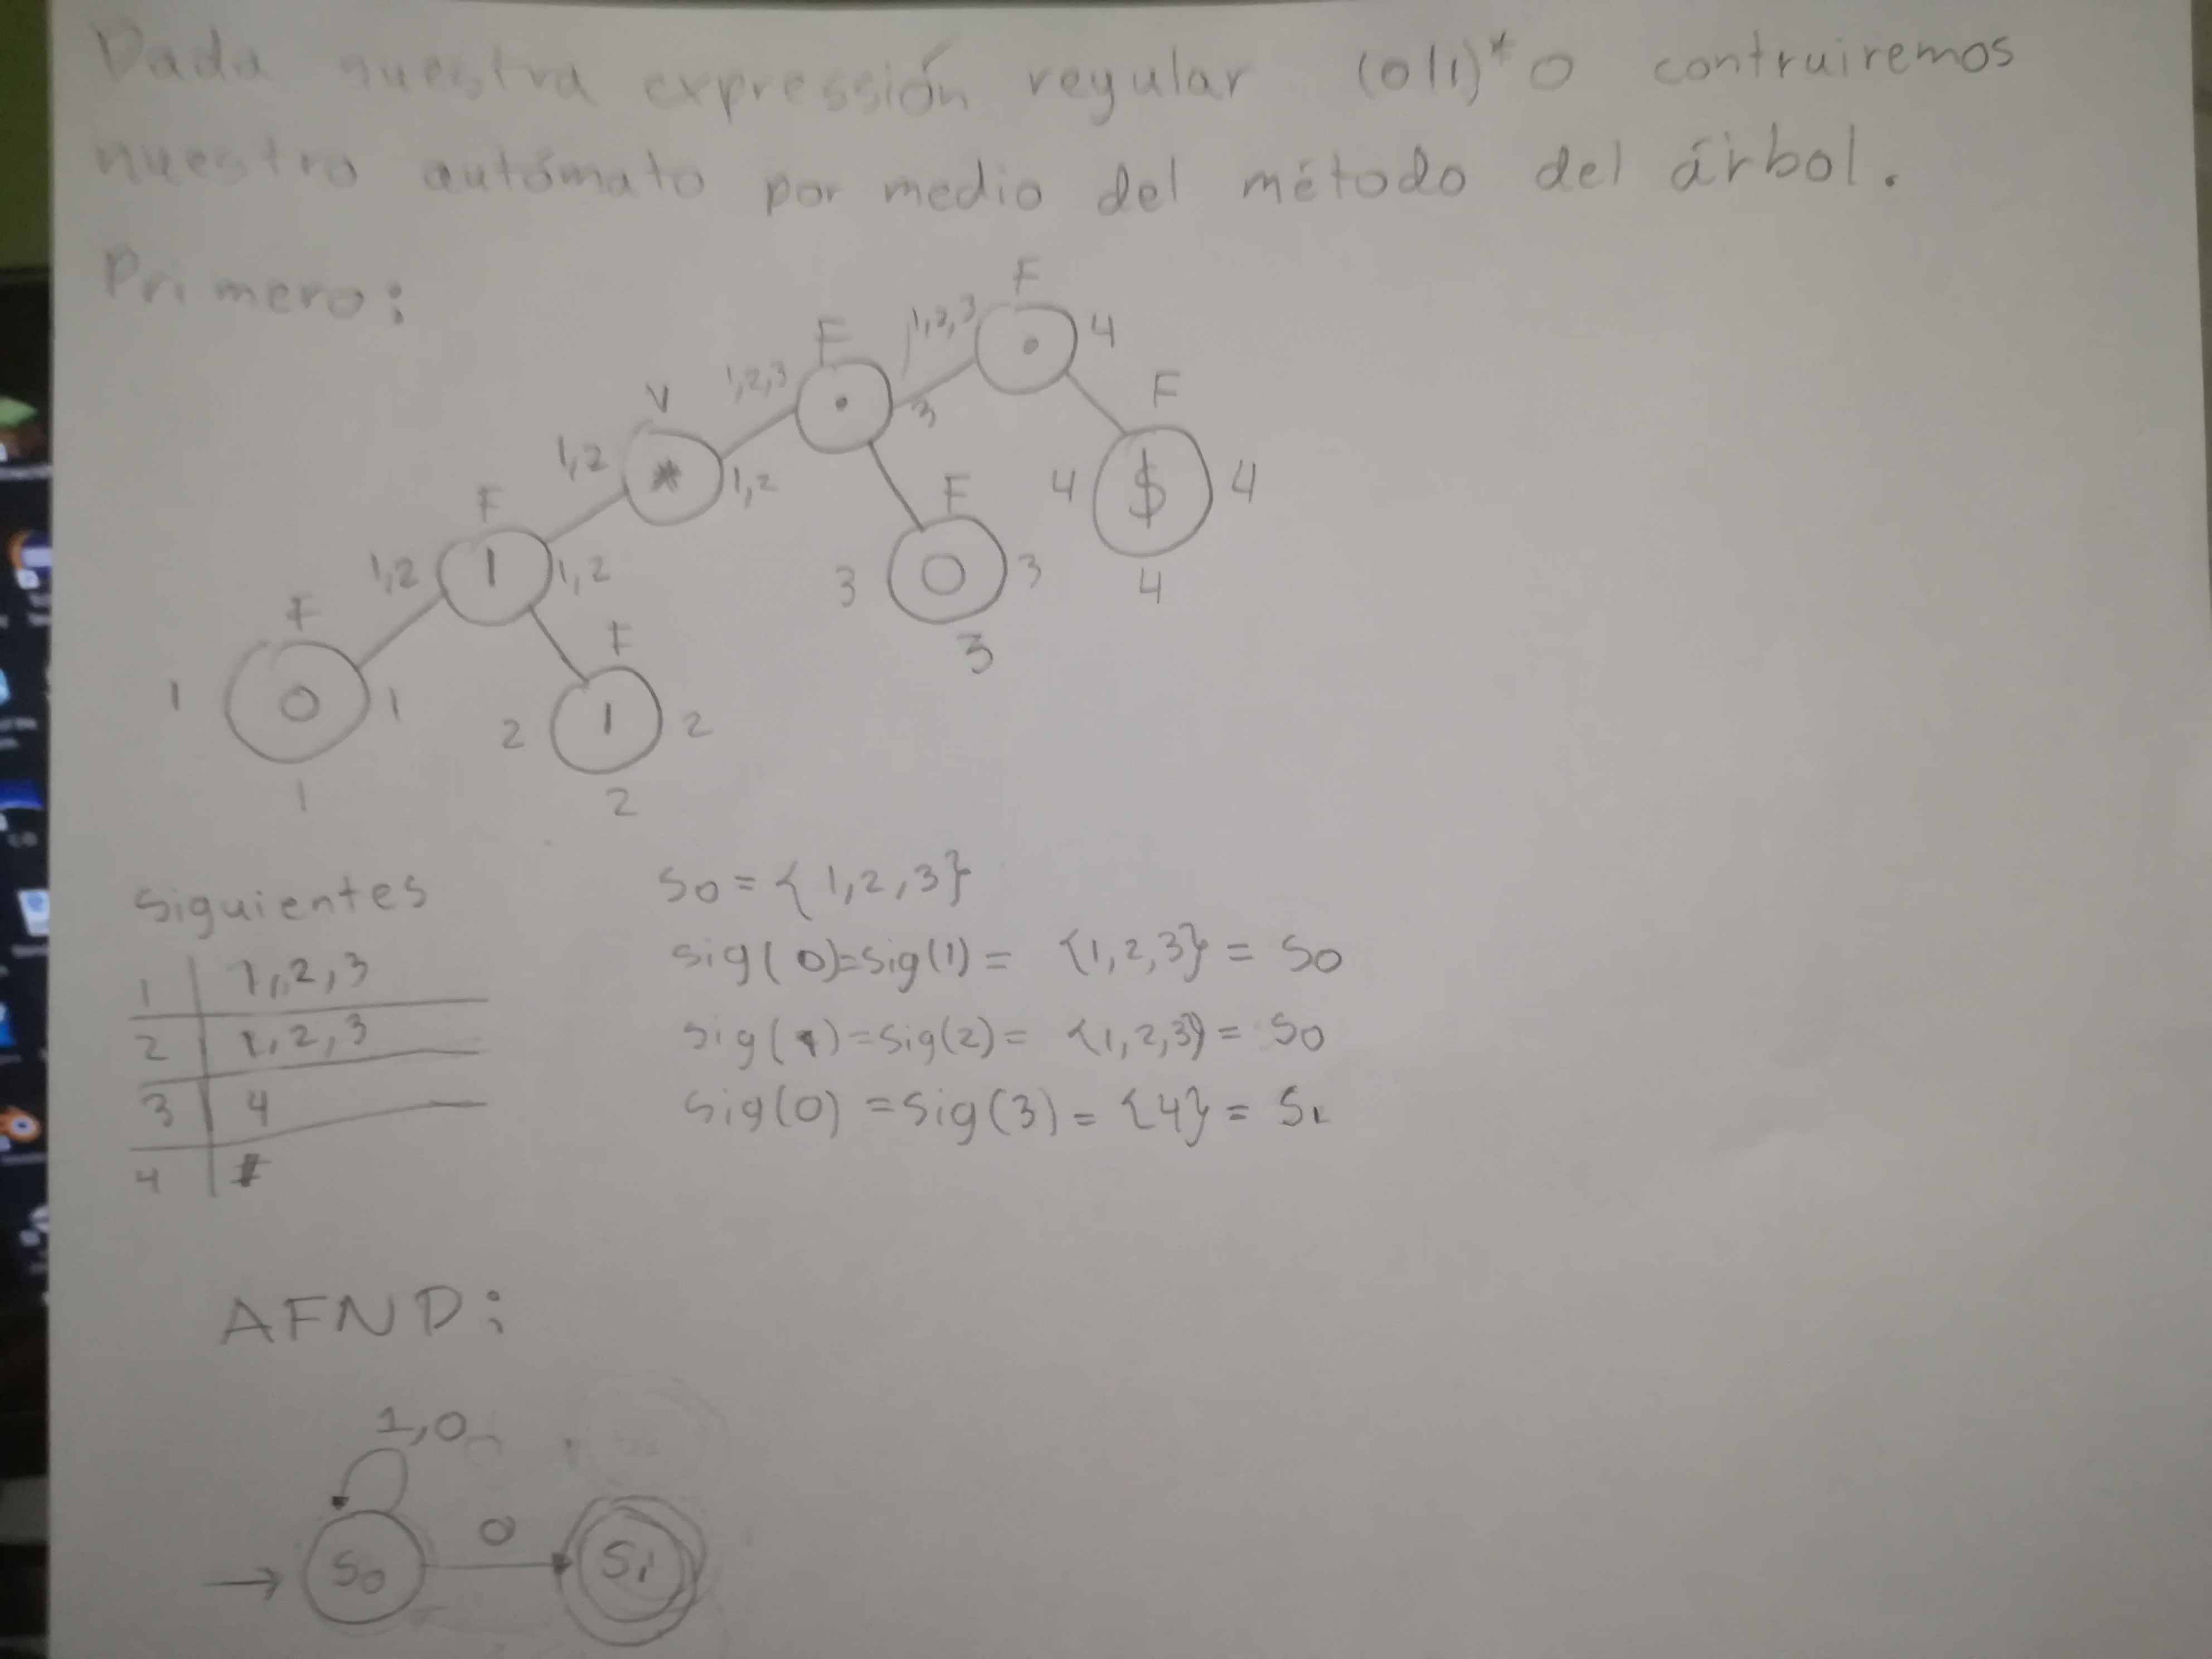 Dada nuestra expressión regular (0|1)*0 contruiremos
nuestro autómato por medio del método del árbol.
Primero:
F
1,2,3 . 4
F
1,2,3 . 3
F
4 $ 4
4
V
1,2 * 1,2
F
3 0 3
3
F
1,2 | 1,2
F
1 0 1
1
F
2 1 2
2
Siguientes
1 | 1,2,3
2 | 1,2,3
3 | 4
4 |
S0 = {1,2,3}
sig(0)=sig(1) = {1,2,3} = S0
sig(1)=sig(2) = {1,2,3} = S0
sig(0) = sig(3) = {4} = S1
AFND:
1,0
S0
0
S1